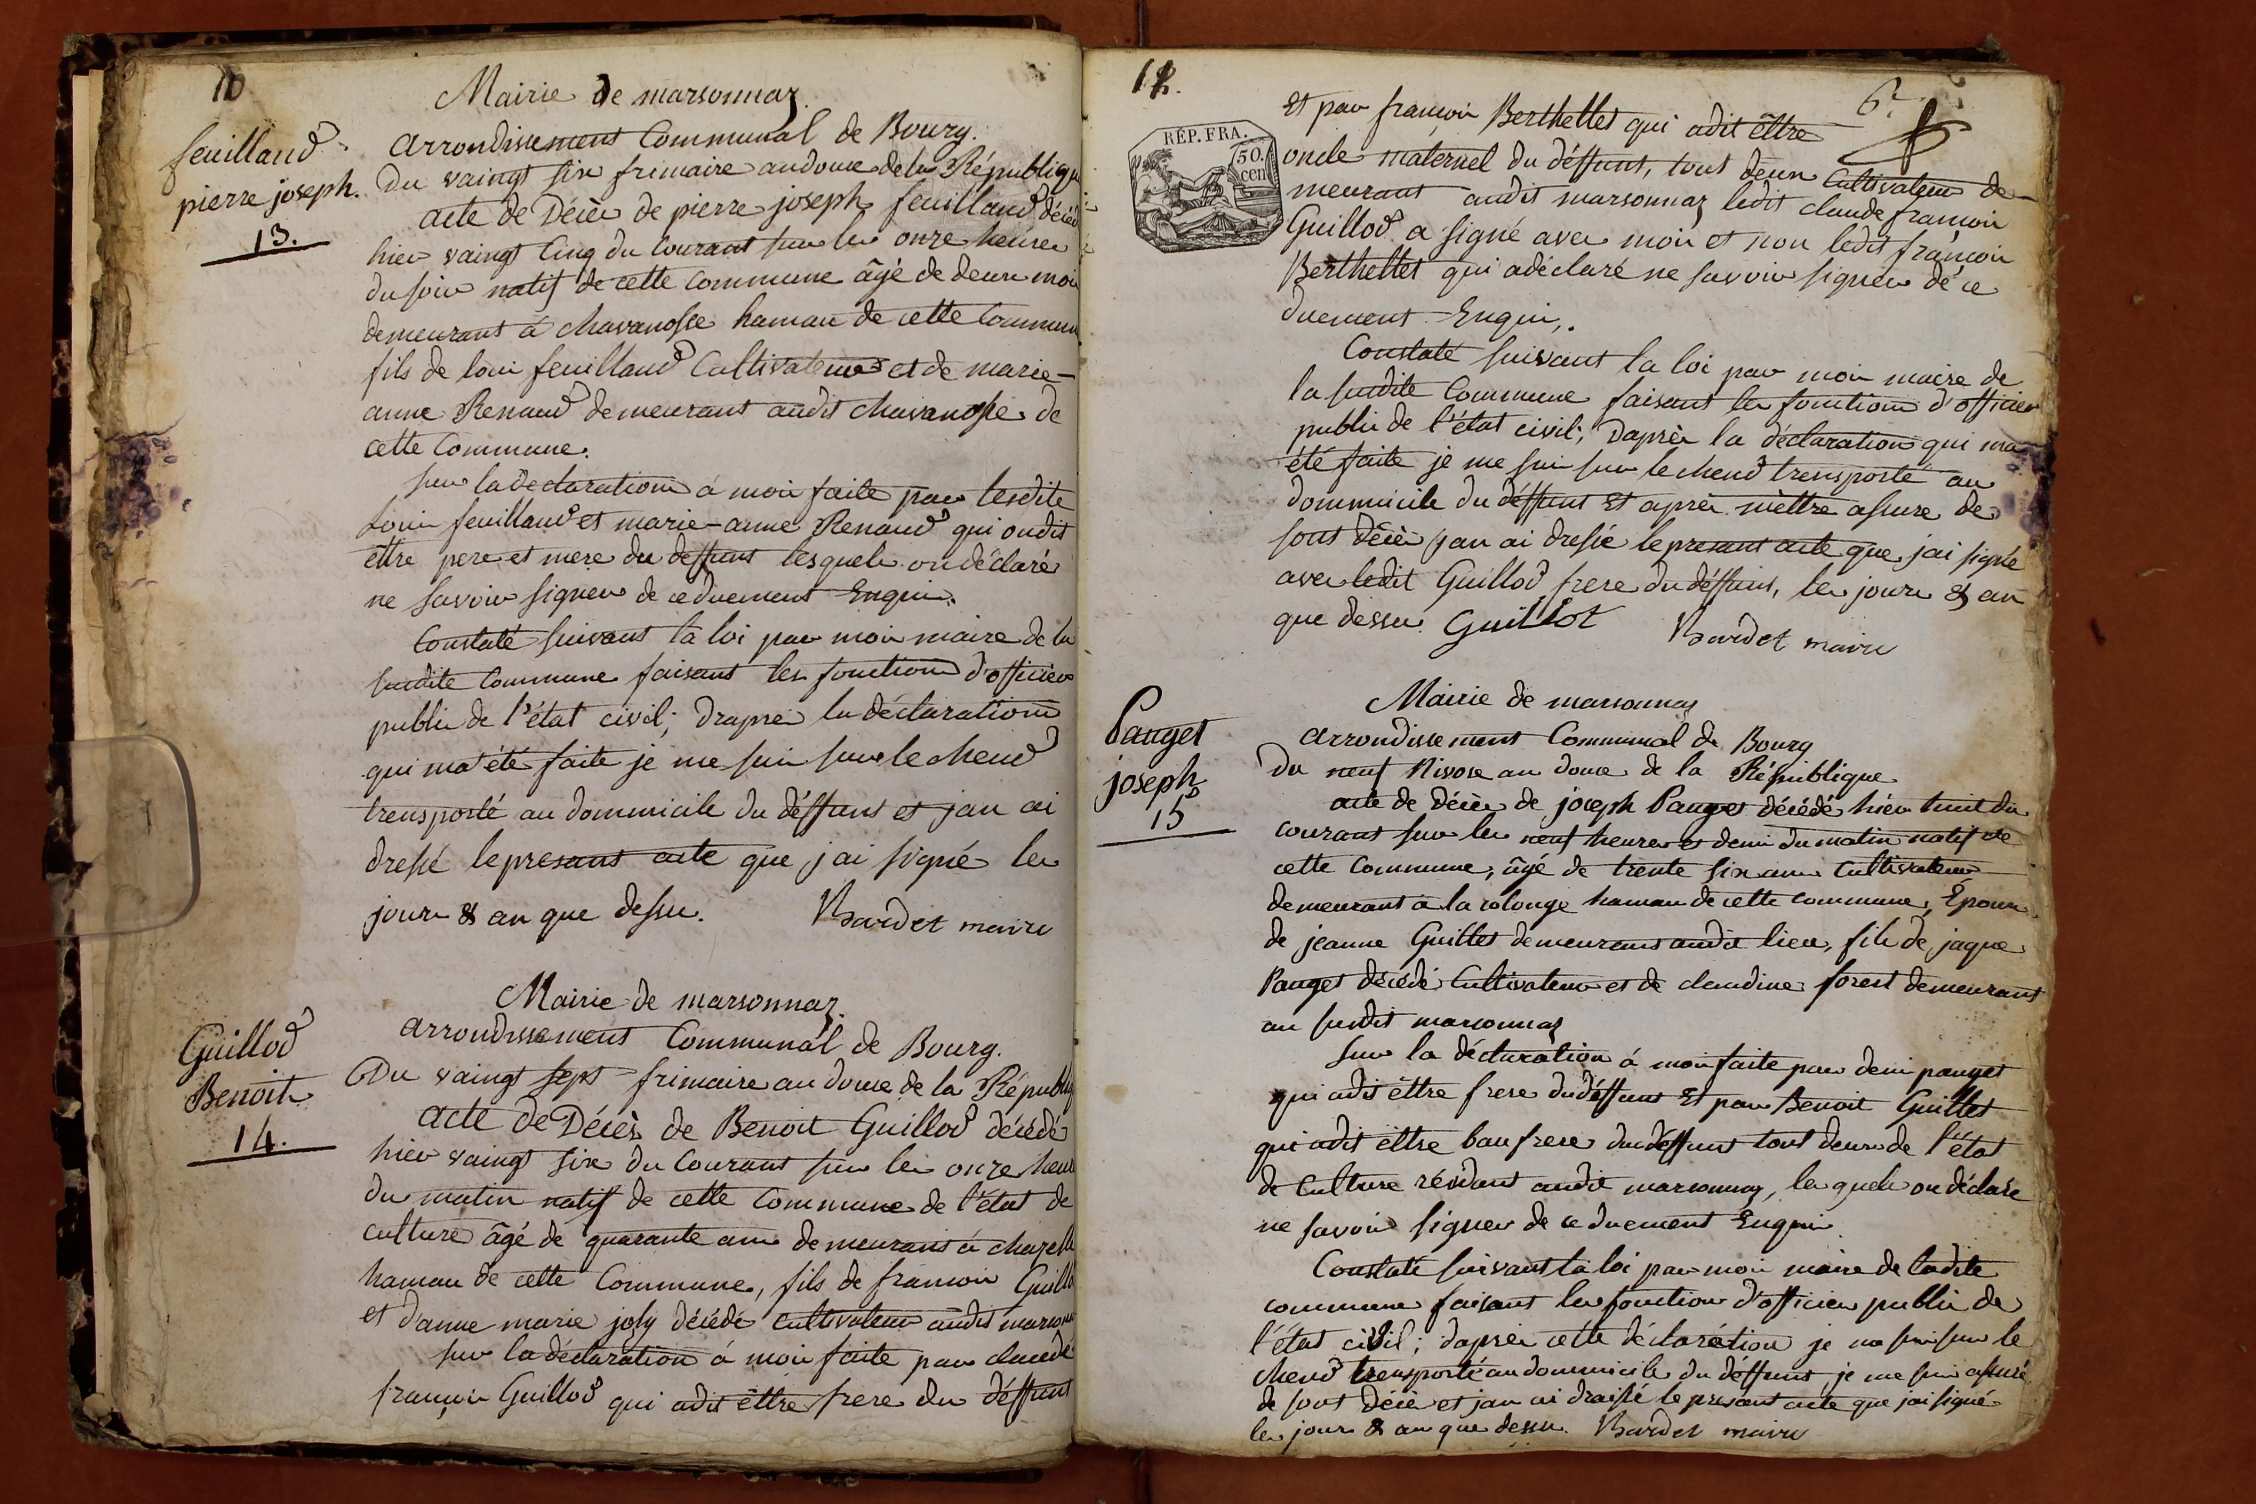 10
Mairie de marsonnaz.
feuilland
pierre joseph.
13.
arrondissement Communal de Bourg.
Du vaingt six frimaire an douxe de la République
acte de Décèz de pierre joseph feuilland décédé
hier vaingt Cinq du Courant sur les onze heures
du soir natif de cette Commune âgé de deux mois
demeurant à chavanosse hamau de cette Commune
fils de loui feuilland Cultivateur et de marie-
anne Renaud demeurant audit chavanosse de
cette Commune.
sur la declaration à moi faite par lesdite
Loui feuilland et marie-anne Renaud qui ondit
être pere et mere du deffunt lesquels on déclaré
ne savoir signer de ce duement Enquis.
Constaté suivant la loi par moi maire de la
susdite Commune faisant les fonction d'officier
public de l'état civil; d'après la déclaration
qui ma été faite je me sui sur le chend
trensporté au dommicile du déffunt et jan ai
dressé le presant acte que j'ai signé les
jour & an que dessu. Bardet maire
Mairie de marsonnaz.
Guillod
Benoit
14.
arrondissement Communal de Bourg.
Du vaingt sept frimaire an douxe de la Républiq
acte de Décèz de Benoit Guillod décédé
hier vaingt six du Courant sur les onze heure
du matin natif de cette Commune de l'état de
culture âgé de quarante ans demeurant à chazelle
hamau de cette Commune, fils de francoi Guillo
et d'anne marie joly décédé cultivateur audit marsonna
sur la déclaration à moi faite par claude
françoi Guillod qui adit être frere du déffunt
11.
6e
RÉP. FRA.
50.
cen
Et par françoi Berthellet qui adit être
oncle maternel du déffunt, tout deux Cultivateur de-
meurant audit marsonnaz ledit claude françoi
Guillod a signé avec moi et non ledit françoi
Berthellet qui a déclaré ne savoir signer de ce
duement Enquis.
Constaté suivant la loi par moi maire de
la susdite Commune faisant les fonction d'officier
public de l'état civil; D'après la déclaration qui ma
été faite je me sui sur le chend trensporté au
dommicile du déffunt Et après m'être assure de
sont décè jan ai dressé le presant acte que j'ai signé
avec ledit Guillod frere du déffunt, les jour & an
que dessu. Guillot Bardet maire
Mairie de marsonnaz
Pauget
joseph
15
arrondissement Communal de Bourg
Du neuf Nivose an douxe de la République
acte de Décèz de joseph Pauget décédé hier huit du
courant sur les neuf heures et demi du matin natif de
cette Commune, âgé de trente six ans Cultivateur
demeurant à la colonge hamau de cette commune, Epoux
de jeanne Guillet demeurant audit lieu, fils de jaque
Pauget décédé Cultivateur et de claudine forest demeurant
au susdit marsonnaz
Sur la déclaration à moi faite par deni pauget
qui adit être frere du déffunt Et par Benoit Guillet
qui adit être baufrere du déffunt tout deux de l'état
de Culture résidant audit marsonnaz, les quels on déclare
ne savoir signer de ce duement Enquis
Constaté suivant la loi par moi maire de ladite
commune faisant les fonction d'officier public de
l'état civil; d'après cette déclaration je me sui sur le
chend trensporté au dommicile du déffunt, je me sui assuré
de sont décè et jan ai draissé le presant acte que jai signé
les jour & an que dessu. Bardet maire